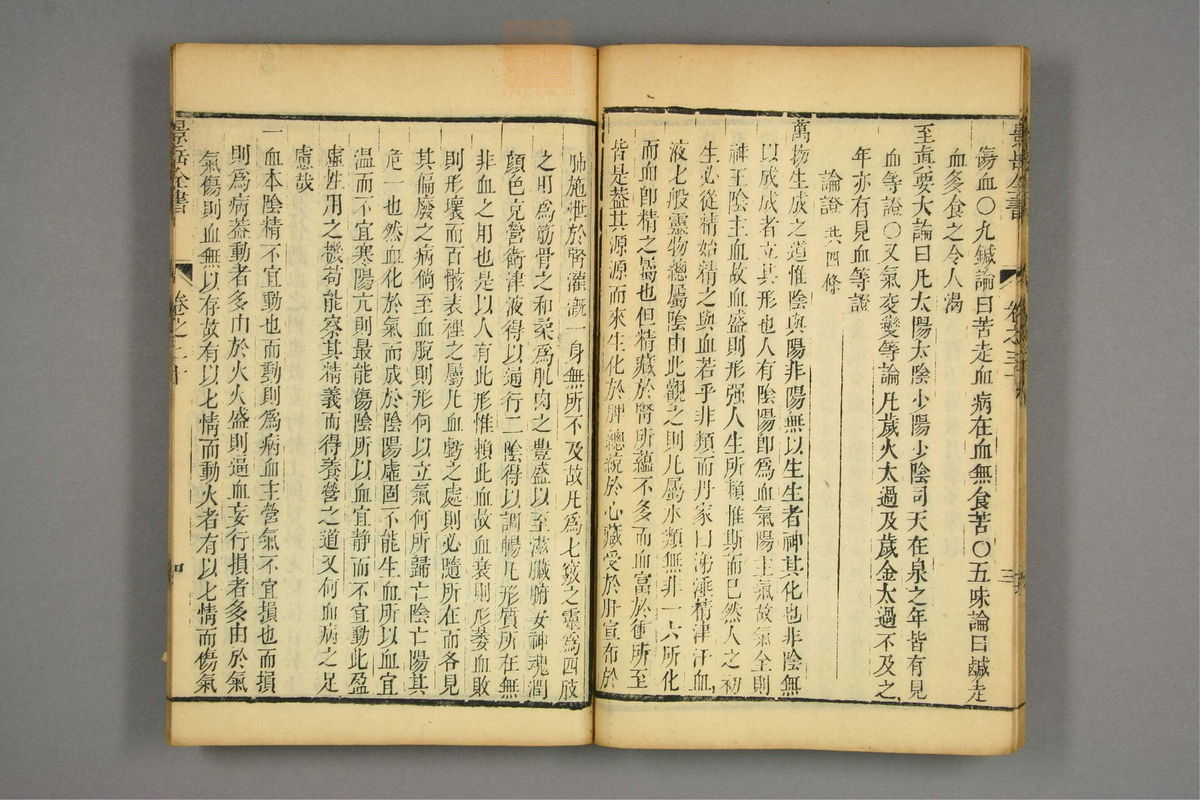 景岳全書
卷之三十
三
傷血○九鍼論曰苦走血病在血無食苦○五味論曰鹹走
血多食之令人渴
至眞要大論曰凡太陽太陰少陽少陰司天在泉之年皆有見
血等證○又氣交變等論凡歲火太過及歲金太過不及之
年亦有見血等證
論證 共四條
萬物生成之道惟陰與陽非陽無以生生者神其化也非陰無
以成成者立其形也人有陰陽卽爲血氣陽主氣故氣全則
神王陰主血故血盛則形强人生所賴惟斯而已然人之初
生必從精始精之與血若乎非類而丹家曰涕唾精津汗血
液七般靈物總屬陰由此觀之則凡屬水類無非一六所化
而血卽精之屬也但精藏於腎所蘊不多而血富於衝所至
皆是葢其源源而來生化於脾總統於心藏受於肝宣布於
肺施泄於腎灌溉一身無所不及故凡爲七竅之靈爲四肢
之用爲筋骨之和柔爲肌肉之豐盛以至滋臟腑安神魂潤
顏色充營衛津液得以通行二陰得以調暢凡形質所在無
非血之用也是以人有此形惟賴此血故血衰則形萎血敗
則形壞而百骸表裡之屬凡血虧之處則必隨所在而各見
其偏廢之病倘至血脫則形何以立氣何所歸亡陰亡陽其
危一也然血化於氣而成於陰陽虛固不能生血所以血宜
溫而不宜寒陽亢則最能傷陰所以血宜静而不宜動此盈
虛性用之機苟能察其精義而得養營之道又何血病之足
慮哉
一血本陰精不宜動也而動則爲病血主營氣不宜損也而損
則爲病葢動者多由於火火盛則逼血妄行損者多由於氣
氣傷則血無以存故有以七情而動火者有以七情而傷氣
景岳全書
卷之三十
四